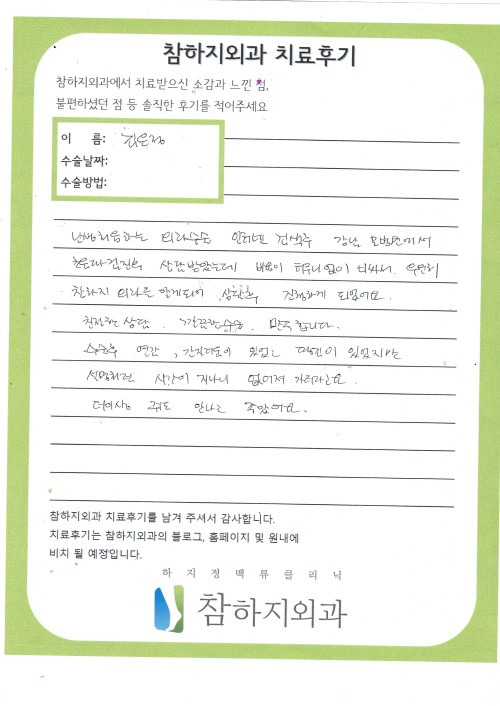 참하지외과 치료후기
참하지외과에서 치료받으신 소감과 느낀 점,
불편하셨던 점 등 솔직한 후기를 적어주세요
이 름:
수술날짜:
수술방법:
강남 에서
상담받았는데 비용이 너무 비싸서. 우연히
참하지 의원을 알게되어 상담후 진행하게 되었어요.
친절한 상담, 깔끔한 수술, 만족합니다.
수술후 약간, 간지러움이 있었는 있었지만
설명처럼 시간이 지나니 없어져 가더라고요.
더이상 쥐도 안나는 좋았어요.
참하지외과 치료후기를 남겨 주셔서 감사합니다.
치료후기는 참하지외과의 블로그, 홈페이지 및 원내에
비치 될 예정입니다.
하지정맥류클리닉
참하지외과